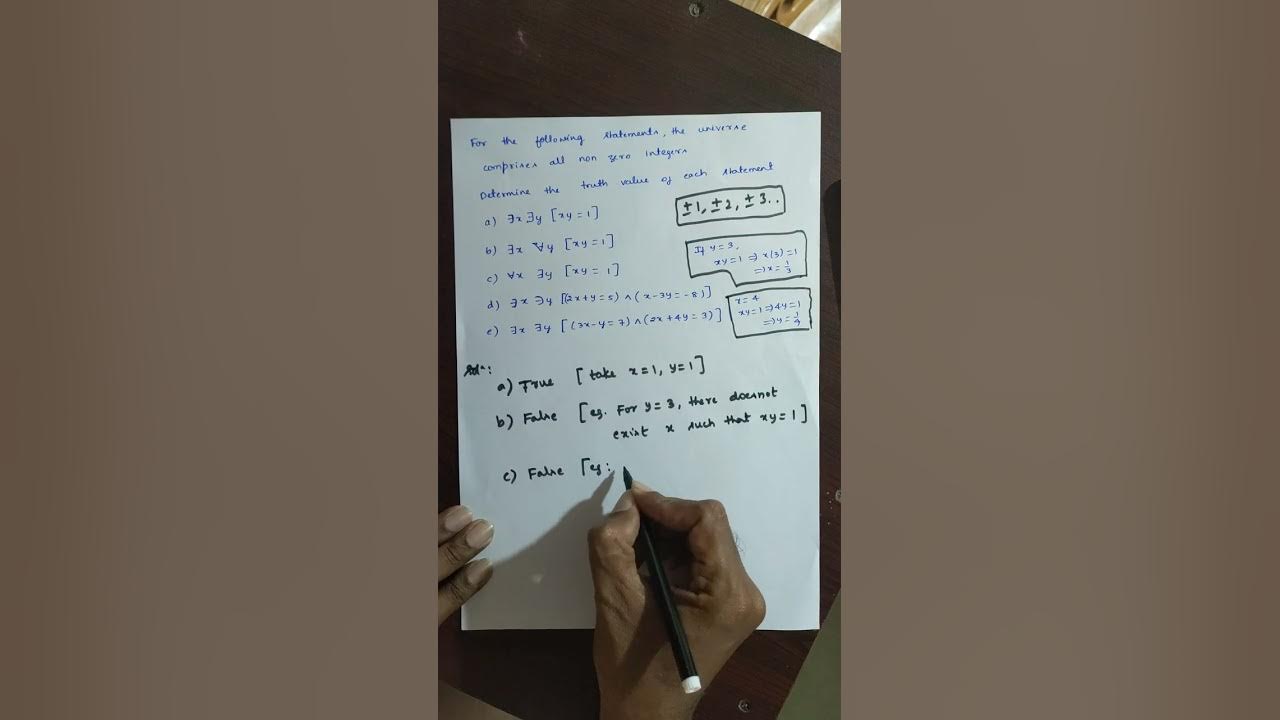 For the following statements, the universe
comprises all non zero integers
Determine the truth value of each statement
a) ∃x ∃y [xy = 1]
±1, ±2, ±3..
b) ∃x ∀y [xy = 1]
If y = 3,
xy = 1 ⇒ x(3) = 1
⇒ x = 1/3
c) ∀x ∃y [xy = 1]
d) ∃x ∃y [(2x+y = 5) ∧ (x-3y = -8)]
x = 4
xy = 1 ⇒ 4y = 1
⇒ y = 1/4
e) ∃x ∃y [(3x-y = 7) ∧ (2x+4y = 3)]
Solⁿ:
a) True [take x=1, y=1]
b) False [eg. For y = 3, there doesnot
exist x such that xy = 1]
c) False [eg: